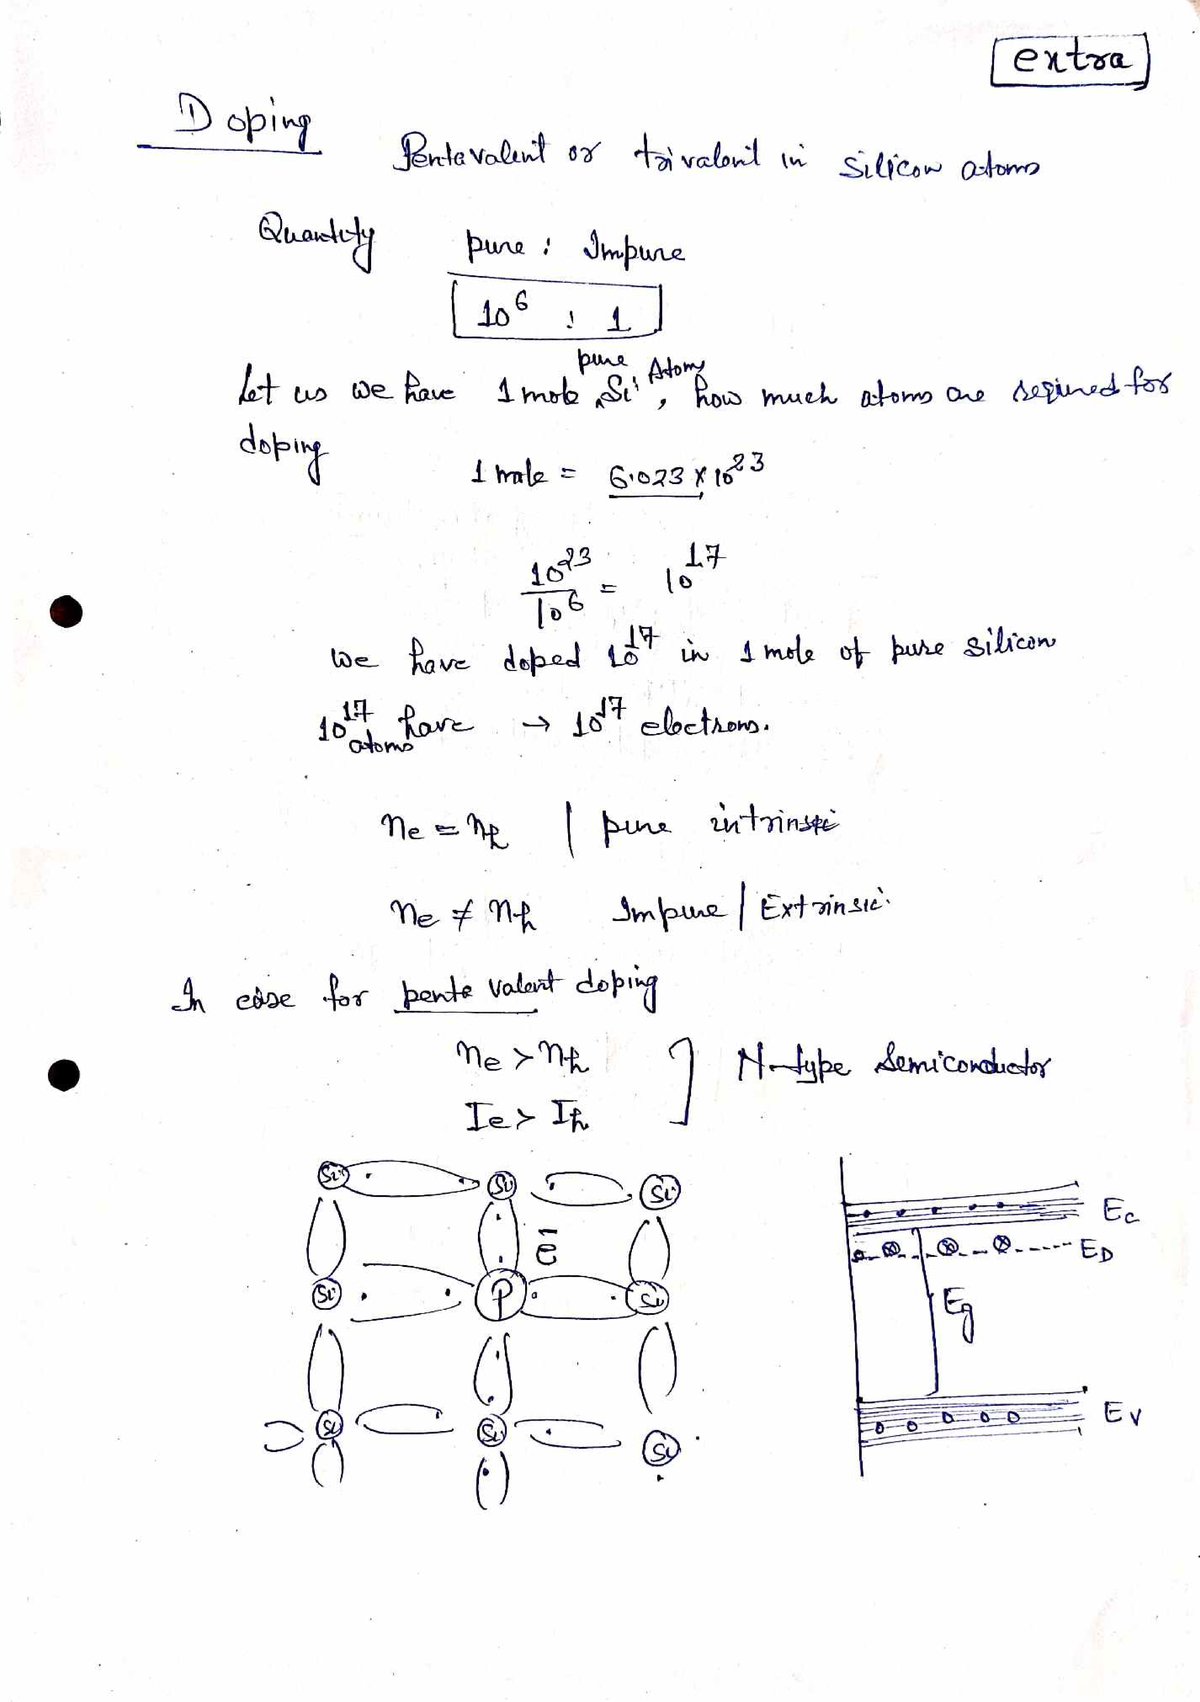 extra
Doping
Pentavalent or trivalent in silicon atoms
Quantity pure : Impure
10⁶ : 1
pure Atoms
Let us we have 1 mole Si, how much atoms are required for
doping
1 mole = 6.023 × 10²³
10²³/10⁶ = 10¹⁷
We have doped 10¹⁷ in 1 mole of pure silicon
10¹⁷ atoms have → 10¹⁷ electrons.
nₑ = nₕ | pure intrinsic
nₑ ≠ nₕ Impure / Extrinsic
In case for penta valent doping
nₑ > nₕ ] N-type Semiconductor
Iₑ > Iₕ
Si Si Si
e⁻
Si P Si
Si Si Si
E_C
E_D
E_g
E_V